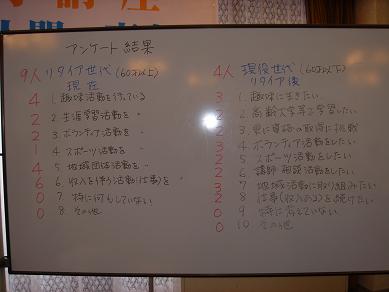 講座
アンケート結果
9人 リタイア世代(60才以上)
現在
4 1. 趣味活動を行っている
2 2. 生涯学習活動を 〃
2 3. ボランティア活動を 〃
1 4. スポーツ活動を 〃
4 5. 地域団体活動を 〃
6 6. 収入を伴う活動(仕事)を 〃
0 7. 特に何もしていない
0 8. その他
4人 現役世代(60才以下)
リタイア後
3 1. 趣味に生きたい
2 2. 高齢大学等で学習したい
3 3. 更に資格の取得に挑戦
2 4. ボランティア活動をしたい
2 5. スポーツ活動をしたい
2 6. 講師・相談活動をしたい
3 7. 地域活動に取り組みたい
2 8. 仕事(収入のある)を続けたい
0 9. 特に考えていない
0 10. その他